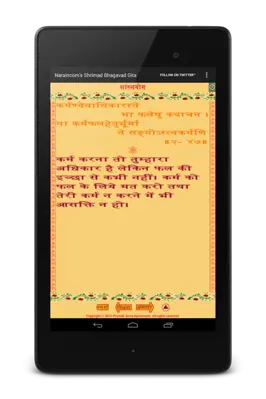 Naraincom's Shrimad Bhagavad Gita
FOLLOW ON TWITTER"
सांख्ययोग
कर्मण्येवाधिकारस्ते
मा फलेषु कदाचन ।
मा कर्मफलहेतुर्भूर्मा
ते सङ्गोऽस्त्वकर्मणि
॥ २- ४७॥
कर्म करना तो तुम्हारा
अधिकार है लेकिन फल की
इच्छा से कभी नहीं। कर्म को
फल के लिये मत करो तथा
तेरी कर्म न करने में भी
आसक्ति न हो।